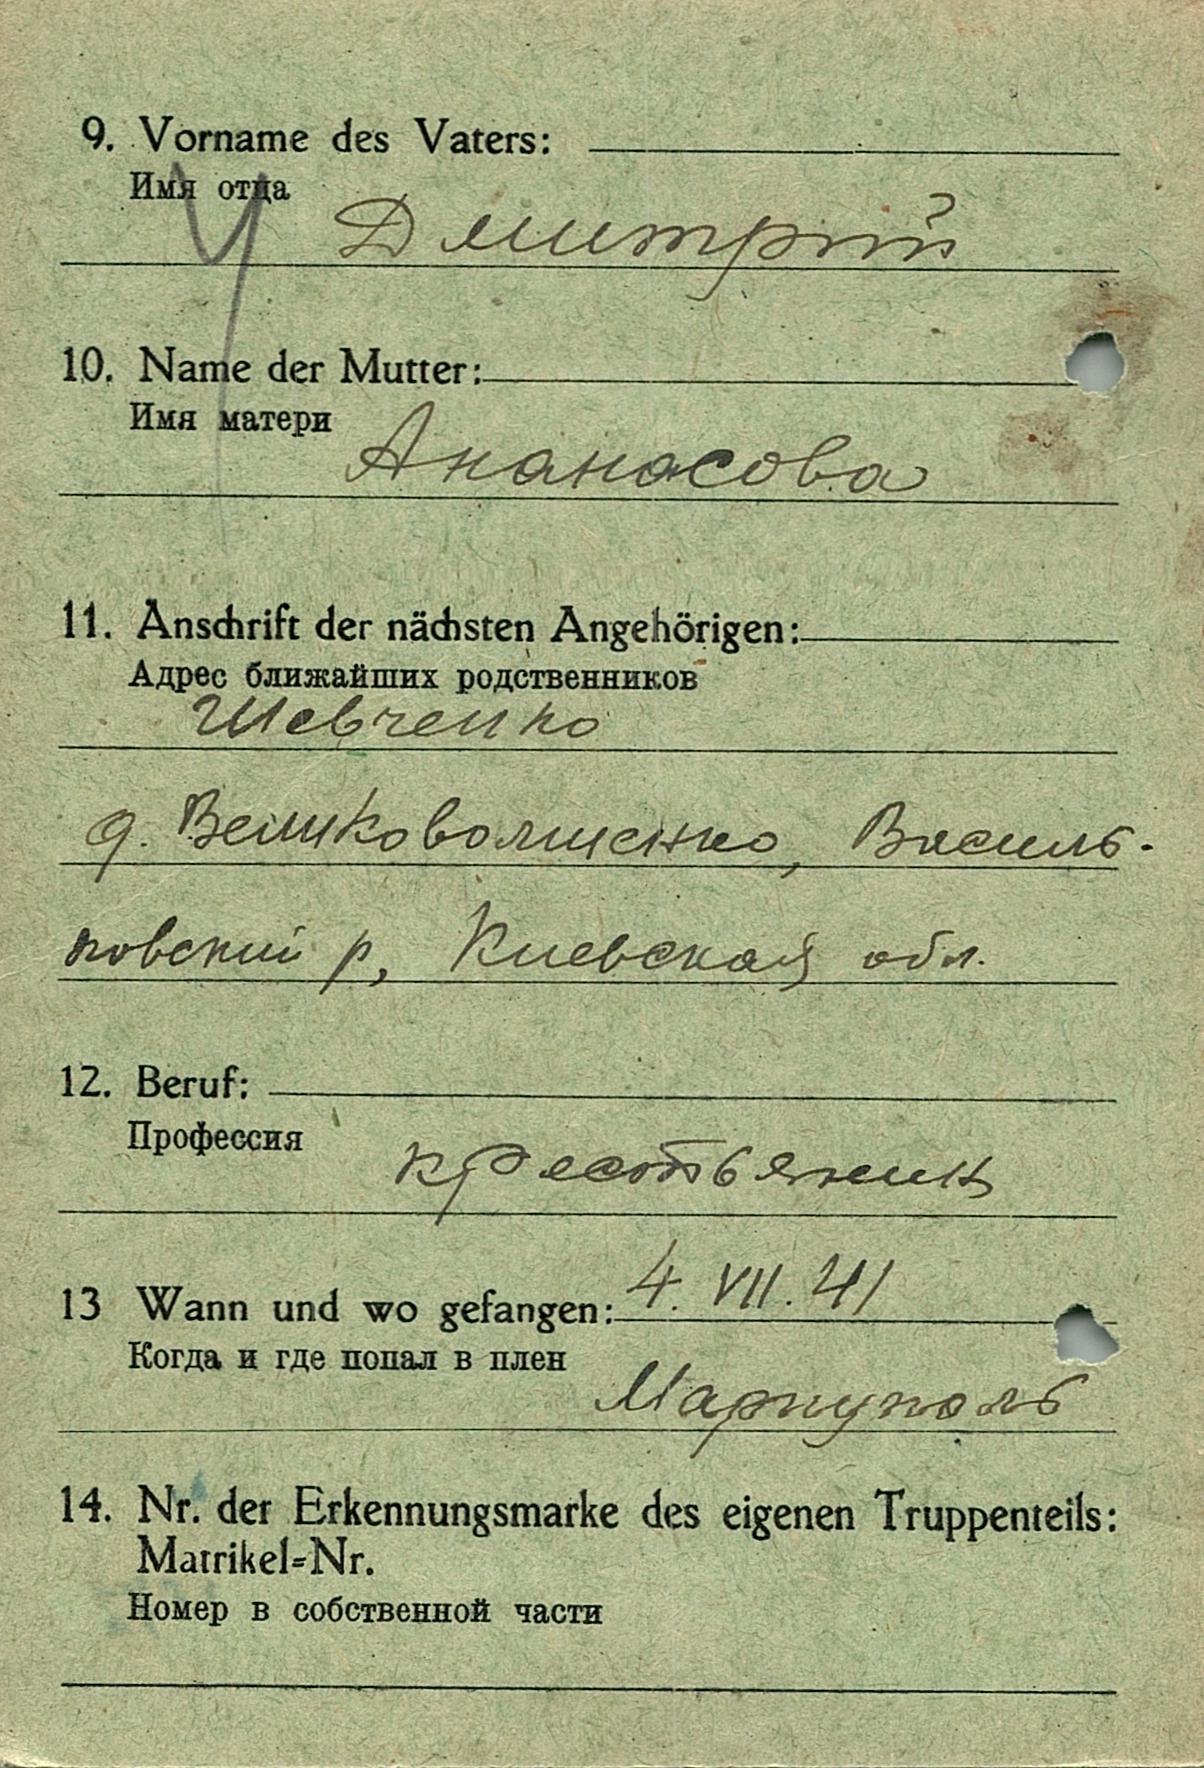 9. Vorname des Vaters:
Имя отца
Дмитрий
10. Name der Mutter:
Имя матери
Ананасова
11. Anschrift der nächsten Angehörigen:
Адрес ближайших родственников
Шевченко
д. Великоволшенко, Василь-
ковский р, Киевская обл.
12. Beruf:
Профессия
крестьянин
13 Wann und wo gefangen: 4. VII. 41
Когда и где попал в плен
Мариуполь
14. Nr. der Erkennungsmarke des eigenen Truppenteils:
Matrikel=Nr.
Номер в собственной части